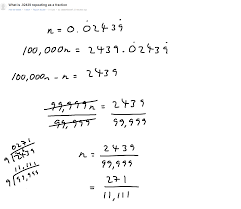 What is .02439 repeating as a fraction
n = 0.0̇2439̇
100,000n = 2439.0̇2439̇
100,000n - n = 2439
99,999n = 2439
99,999 99,999
n = 2439
99,999
= 271
11,111
0271
9)2439
11,111
9)99,999